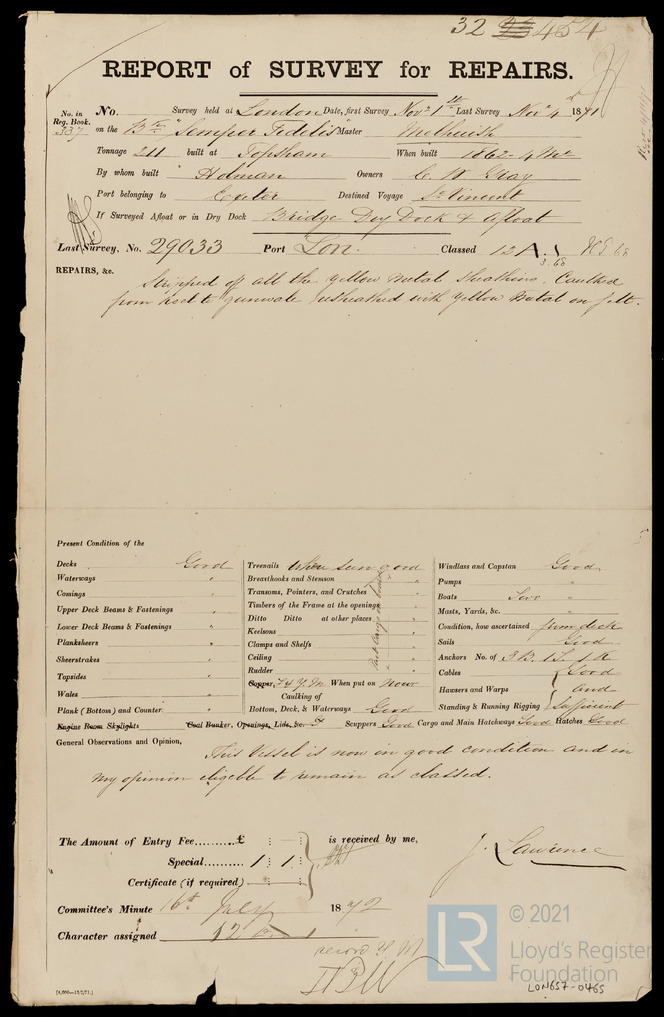 32 454
REPORT of SURVEY for REPAIRS.
No. in Reg. Book. 337
No. Survey held at London Date, first Survey Novr 1st Last Survey Novr 4th 1871
on the Bkn "Semper Fidelis" Master
Tonnage 211 built at Topsham When built 1862-4 Mo
By whom built Holman Owners C. W. Gray
Port belonging to Exeter Destined Voyage St Vincent
If Surveyed Afloat or in Dry Dock Bridge Dry Dock & Afloat
Last Survey, No. 29033 Port Lon. Classed 12 A.1 3.68
REPAIRS, &c. Stripped of all the yellow metal sheathing. Caulked
from keel to gunwale resheathed with yellow metal on felt.
Present Condition of the
Decks Good
Waterways "
Comings "
Upper Deck Beams & Fastenings "
Lower Deck Beams & Fastenings "
Planksheers "
Sheerstrakes "
Topsides "
Wales "
Plank (Bottom) and Counter "
Engine Room Skylights Coal Bunker, Openings, Lids, &c.
Treenails When seen good
Breasthooks and Stemson "
Transoms, Pointers, and Crutches "
Timbers of the Frame at the openings "
Ditto Ditto at other places "
Keelsons "
Clamps and Shelfs "
Ceiling "
Rudder "
Copper, F & Y.M. When put on Now
Caulking of
Bottom, Deck, & Waterways Good
Windlass and Capstan Good
Pumps "
Boats Two "
Masts, Yards, &c. "
Condition, how ascertained from deck
Sails Good
Anchors No. of 3B. 1S. 1K
Cables Good
Hawsers and Warps and
Standing & Running Rigging Sufficient
Scuppers Good Cargo and Main Hatchways Good Hatches Good
General Observations and Opinion, This Vessel is now in good condition and in
my opinion eligible to remain as classed.
The Amount of Entry Fee.........£ : : is received by me,
Special.......... 1 : 1 :
Certificate (if required)
J. Lawrence
Committee's Minute 16th July 1872
Character assigned 12 A 1
record Y.M
LR © 2021
Lloyd's Register
Foundation
LON657-0465